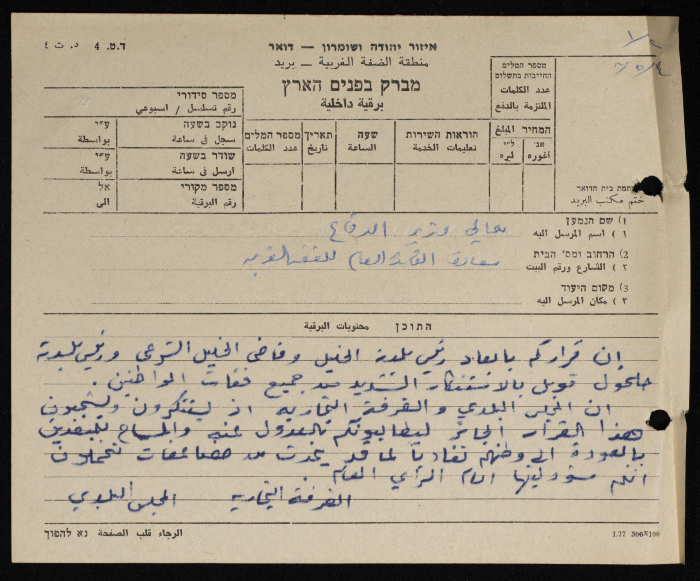 ד.ט. 4 د. ت ٤
איזור יהודה ושומרון — דואר
منطقة الضفة الغربية — بريد
מברק בפנים הארץ
برقية داخلية
מספר המלים
החייבות בתשלום
عدد الكلمات
الملتزمة بالدفع
המחיר المبلغ
אג' اغوره
ל"י ليره
חותמת בית הדואר
ختم مكتب البريد
מספר סידורי
رقم تسلسل / اسبوعي
נוקב בשעה ע"י
سجل في ساعة بواسطة
שודר בשעה ע"י
ارسل في ساعة بواسطة
מספר מקורי אל
رقم البرقية الى
מספר המלים
عدد الكلمات
תאריך
تاريخ
שעה
الساعة
הוראות השירות
تعليمات الخدمة
1) שם הנמען
١ ) اسم المرسل اليه
معالي وزير الدفاع
2) הרחוב ומס' הבית
٢ ) الشارع ورقم البيت
سعادة القائد العام للضفة الغربية
3) מקום היעוד
٣ ) مكان المرسل اليه
התוכן محتويات البرقية
ان قراركم بابعاد رئيس بلدية الخليل وقاضي الخليل الشرعي ورئيس بلدية
حلحول قوبل بالاستنكار الشديد من جميع فئات المواطنين .
ان المجلس البلدي والغرفة التجارية اذ يستنكرون ويشجبون
هذا القرار الجائر ليطالبونكم بالعدول عنه والسماح للمبعدين
بالعودة الى وطنهم تفادياً لما قد يحدث من مضاعفات تتحملون
انتم مسؤوليتها امام الرأي العام
الغرفة التجارية المجلس البلدي
الرجاء قلب الصفحة נא להפוך
1.77 300X100